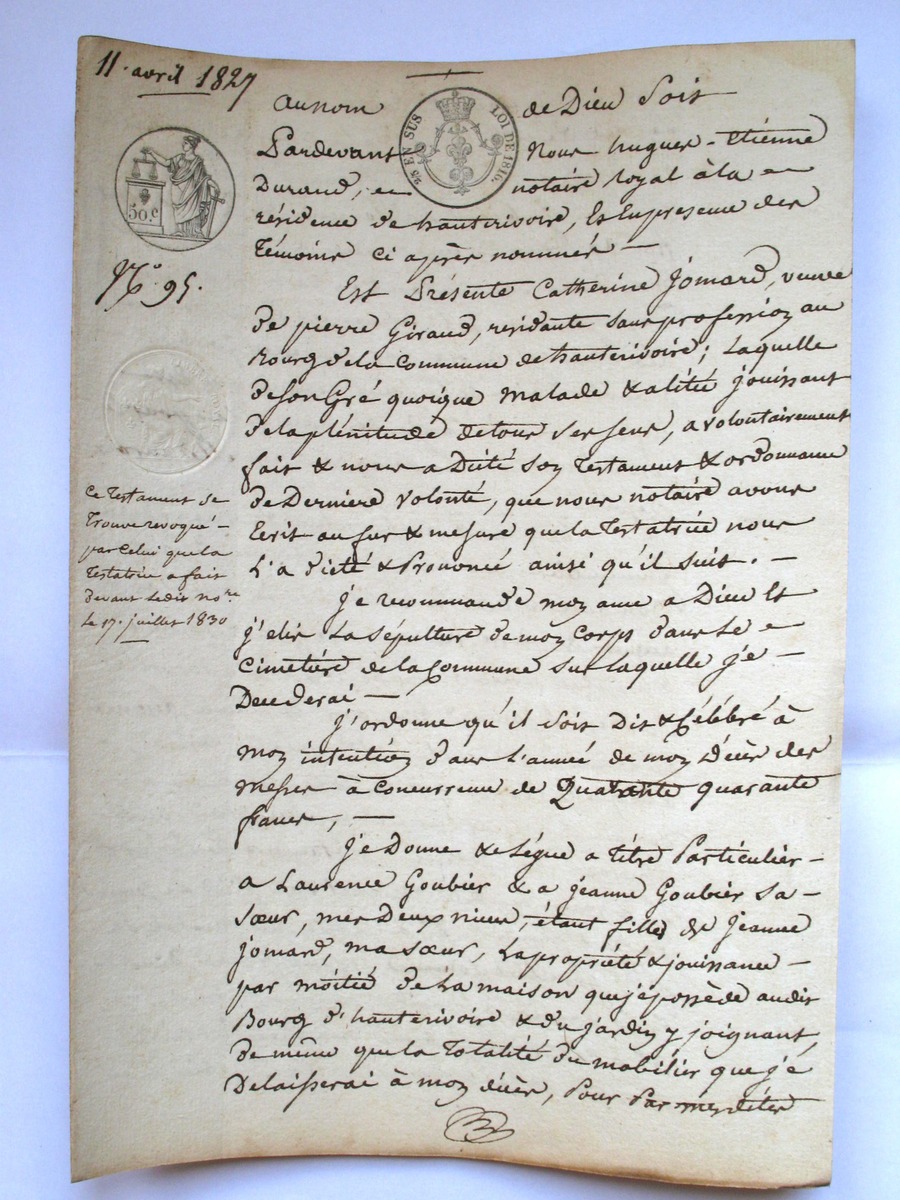 11. avril 1827
au nom de Dieu soit
25 EN SUS LOI DE 1816.
Pardevant Nous hugues-Etienne
Durand, notaire royal à la
résidence de hauterivoire, Et En presence des
Témoins ci après nommés —
50.c
N.o 95.
Est Présente Catherine Jomard, veuve
de pierre Giraud, residante sans profession au
Bourg de la Commune de hauterivoire; Laquelle
de son Gré quoique malade & alitée jouissant
de la plénitude de tous ses sens, a volontairement
fait & nous a Dicté son Testament & ordonnance
de Derniere volonté, que nous notaire avons
Ecrit au fur & mesure que la Testatrice nous
L'a dicté & Prononcé ainsi qu'il suit. —
Ce Testament se
Trouve revoqué —
par Celui que la
Testatrice a fait
devant Ledit no.re
Le 17. juillet 1830
Je recommande mon ame a Dieu Et
j'elis La sépulture de mon Corps dans Le
Cimetière de la Commune sur laquelle je —
Decederai —
J'ordonne qu'il soit Dit & Célébré à
mon intention dans l'année de mon Décès des
messes à Concurrence de Quarante quarante
francs, —
Je Donne & Légue a titre Particulier —
a Laurence Goubier & a jeanne Goubier sa —
sœur, mes Deux nieces, étant filles de Jeanne
Jomard, ma sœur, La propriété & jouissance —
par moitié de la maison que je possède au dit
Bourg d'hauterivoire & du jardin y joignant,
de même que la Totalité du mobilier que je
Delaisserai à mon décès, Pour Par mes dites